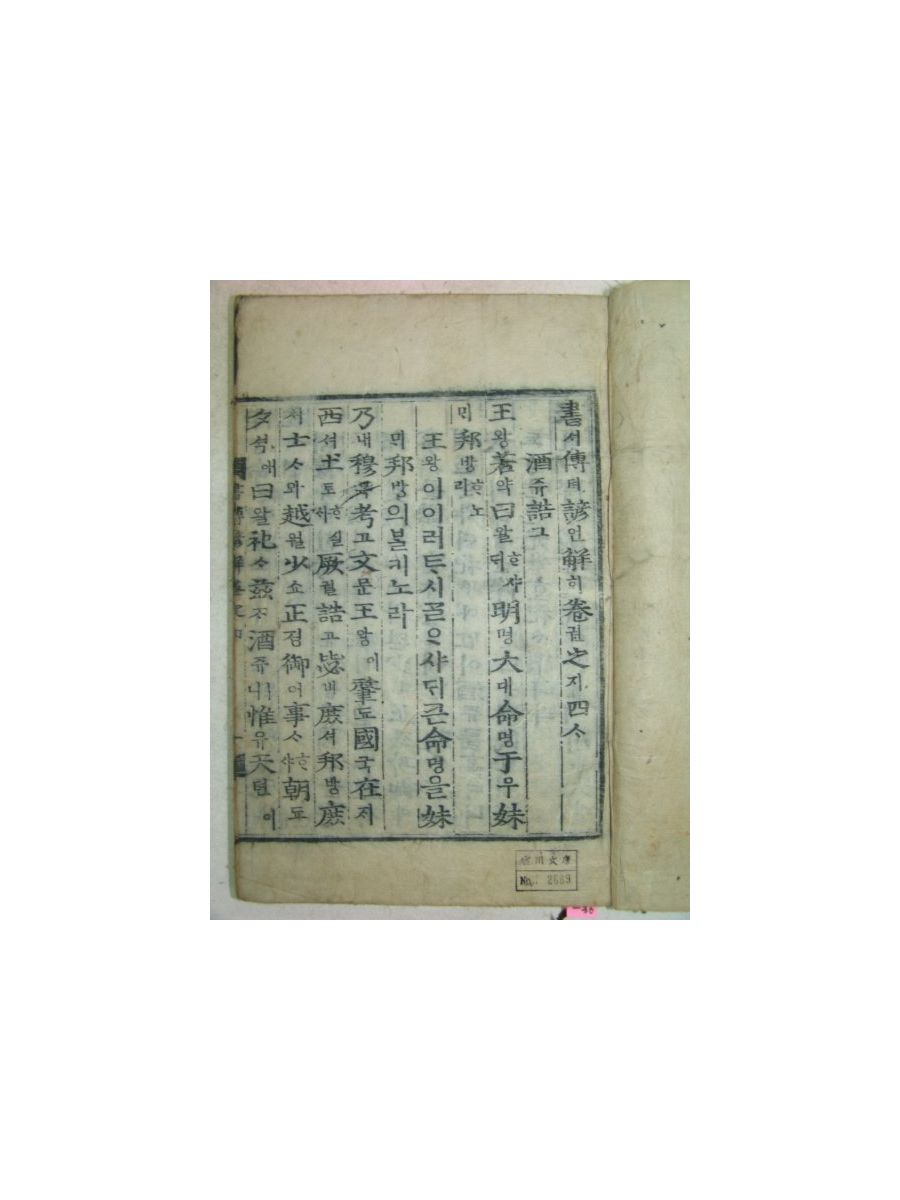 書셔傳뎐諺언解ᄒᆡ卷권之지四ᄉᆞ
酒쥬誥고
王왕若약曰왈ᄒᆞ샤ᄃᆡ明명大대命명于우妹
ᄆᆡ邦방ᄒᆞ노라
王왕이이러ᄐᆞ시ᄀᆞᆯᄋᆞ샤ᄃᆡ큰命명을妹
ᄆᆡ邦방의ᄇᆞᆯ기노라
乃내穆목考고文문王왕이肇됴國국在ᄌᆡ
西셔土토ᄒᆞ실ᄉᆡ厥궐誥고毖비庶셔邦방庶
셔士ᄉᆞ와越월少쇼正졍御어事ᄉᆞᄒᆞ샤朝됴
夕셕애曰왈祀ᄉᆞ玆ᄌᆞ酒쥬ㅣ니惟유天텬이
No. 2689